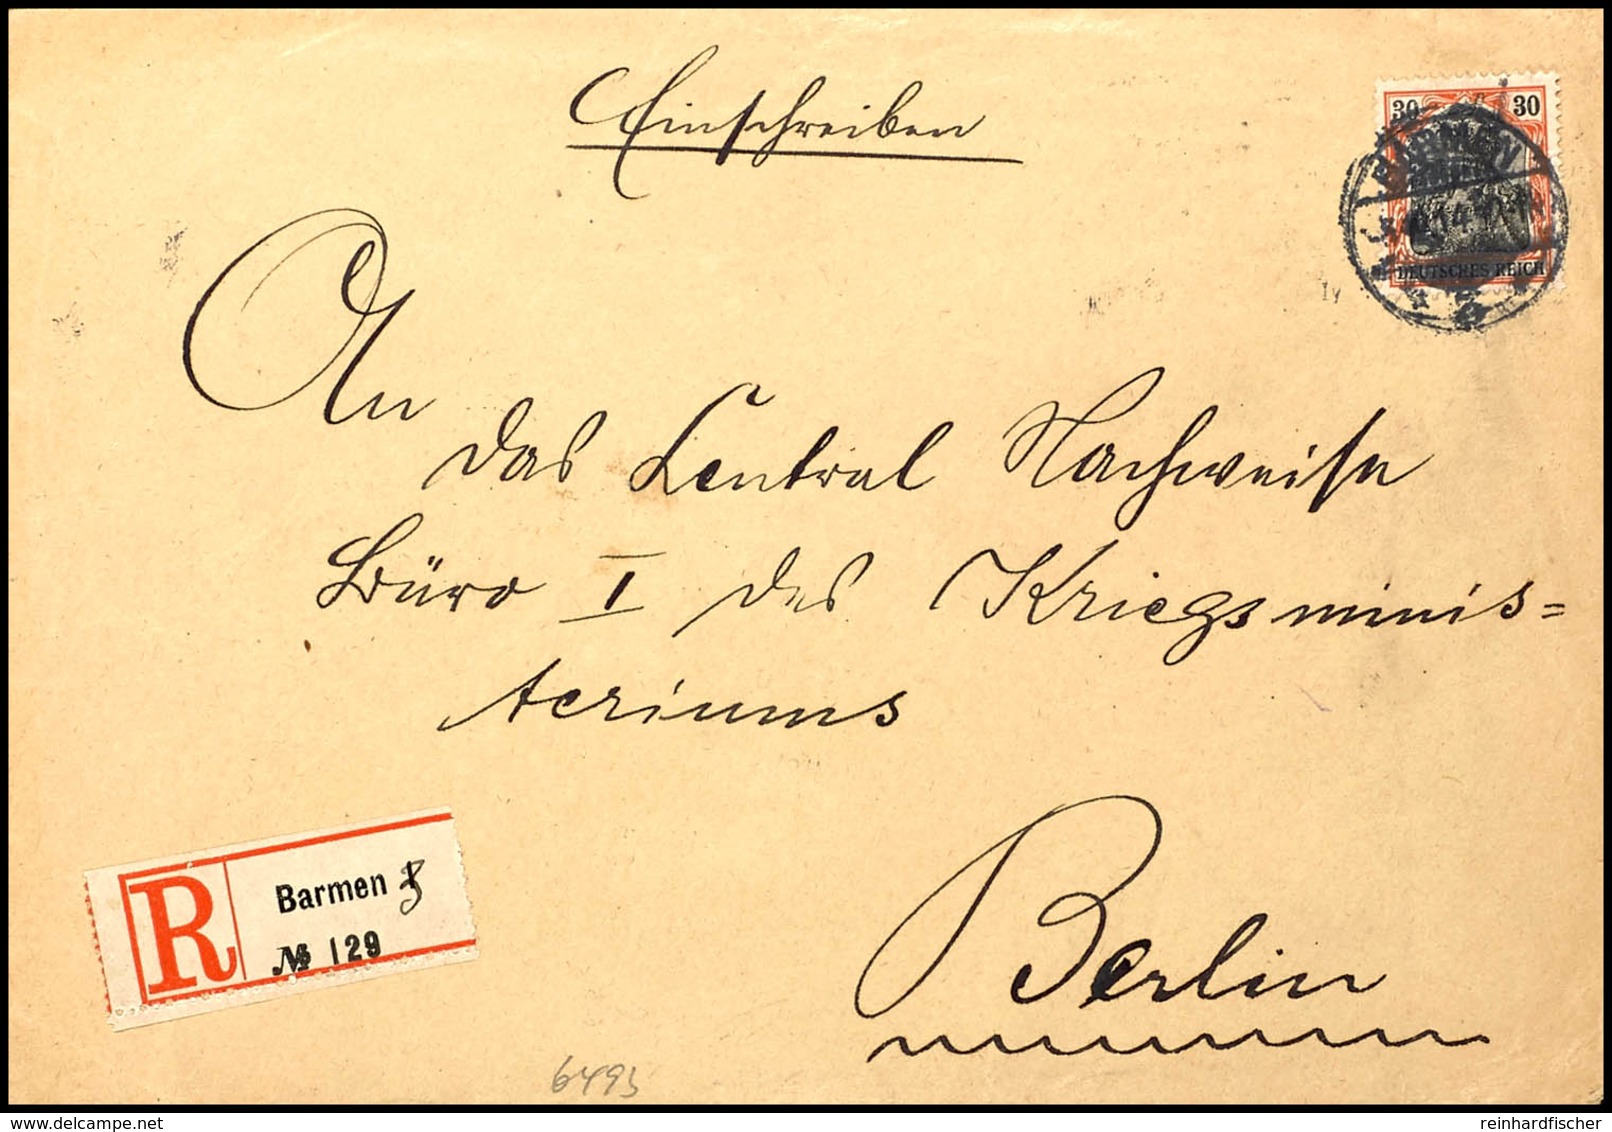 Einschreiben
30 30
BARMEN
DEUTSCHES REICH
An
das Central Nachweise
Büro I des Kriegsminis=
teriums
R Barmen 3
№ 129
Berlin
6493
delcampe.net
reinhardfischer